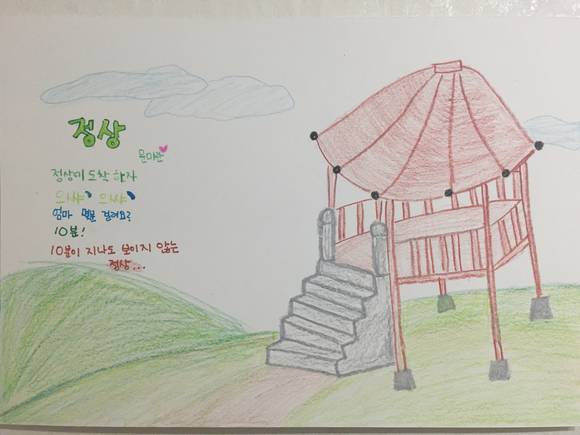 정상
문미란
정상이 도착 하자
으쌰 으쌰
엄마 몇분 걸려요?
10분!
10분이 지나도 보이지 않는
정상...